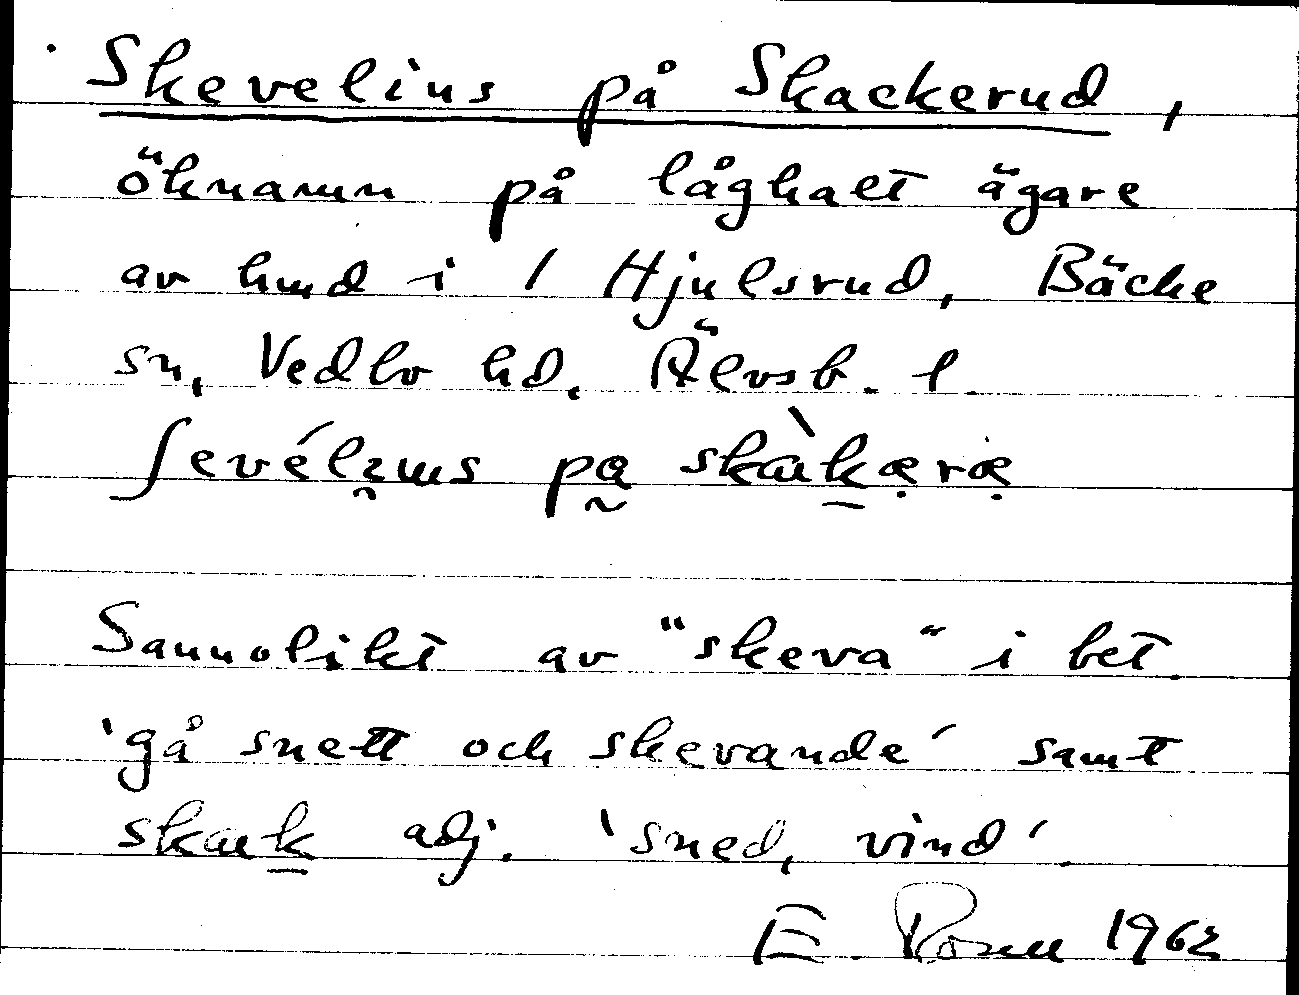 Skevelius på Skackerud,
öknamn på låghalt ägare
av hund i 1 Hjulsrud, Bäcke
sn, Vedbo hd, Älvsb. l.
Sannolikt av "skeva" i bet.
'gå snett och skevande' samt
skak adj. 'sned, vind'.
E. Rosell 1963